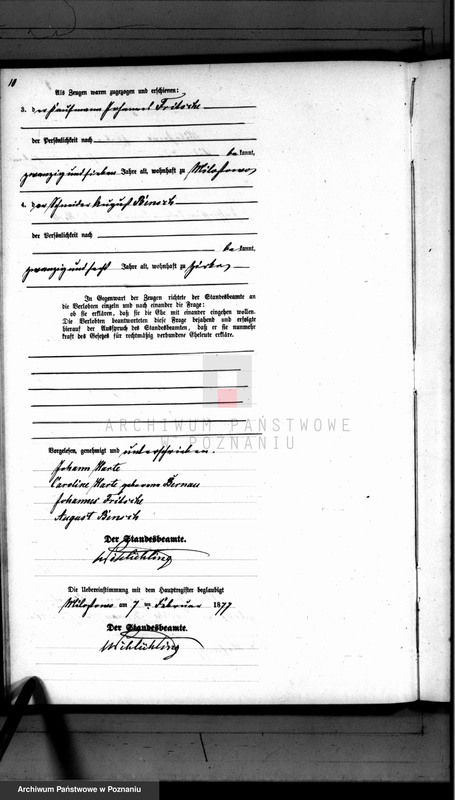 10
Als Zeugen waren zugezogen und erschienen:
3. der Kaufmann Johannes Fritsche
der Persönlichkeit nach
be kannt,
zwanzig und sieben Jahre alt, wohnhaft zu Milostowo
4. der Schneider August Biensch
der Persönlichkeit nach
be kannt,
zwanzig und sechs Jahre alt, wohnhaft zu Zirke
In Gegenwart der Zeugen richtete der Standesbeamte an
die Verlobten einzeln und nach einander die Frage:
ob sie erklären, daß sie die Ehe mit einander eingehen wollen.
Die Verlobten beantworteten diese Frage bejahend und erfolgte
hierauf der Ausspruch des Standesbeamten, daß er sie nunmehr
kraft des Gesetzes für rechtmäßig verbundene Eheleute erkläre.
ARCHIWUM PAŃSTWOWE
W POZNANIU
Vorgelesen, genehmigt und unterschrieben.
Johann Harte
Caroline Harte geborene Bernau
Johannes Fritsche
August Biensch
Der Standesbeamte.
Die Uebereinstimmung mit dem Hauptregister beglaubigt
Milostowo am 7 ten Februar 1877
Der Standesbeamte.
Archiwum Państwowe w Poznaniu